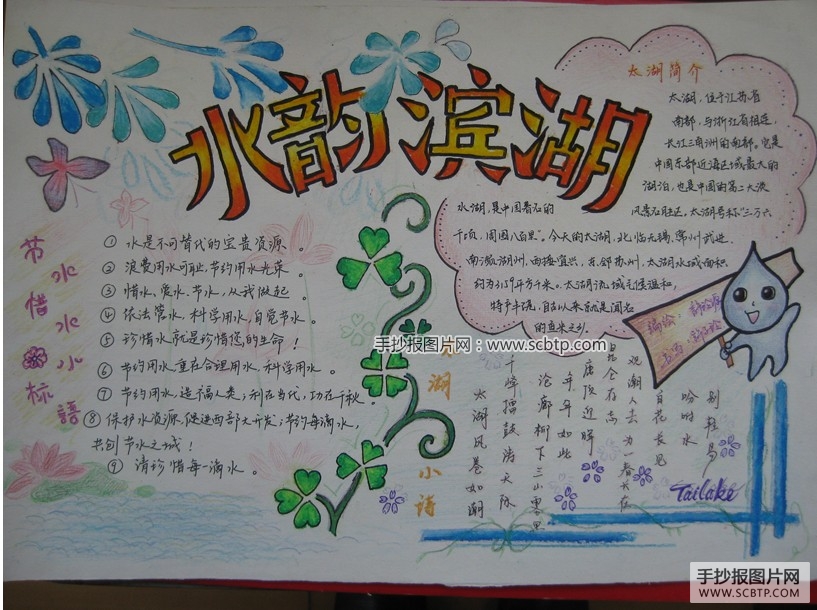 水韵滨湖
节惜水水小标語
① 水是不可替代的宝贵资源。
② 浪费用水可耻,节约用水光荣。
③ 惜水、爱水、节水,从我做起。
④ 依法管水,科学用水,自觉节水。
⑤ 珍惜水就是珍惜您的生命!
⑥ 节约用水,重在合理用水,科学用水。
⑦ 节约用水,造福人类,利在当代,功在千秋。
⑧ 保护水资源,促进西部大开发;节约每滴水,
共创节水之城!
⑨ 请珍惜每一滴水。
太湖简介
太湖,位于江苏省
南部,与浙江省相连,
长江三角洲的南部。它是
中国东部近海区域最大的
湖泊,也是中国的第二大淡
水湖,是中国著名的
风景名胜区。太湖号称“三万六
千顷,周围八百里”。今天的太湖,北临无锡,常州武进,
南濒湖州,西接宜兴,东邻苏州,太湖水域面积
约为3159平方千米。太湖流域气候温和,
特产丰饶,自古以来就是闻名
的鱼米之乡。
太湖小诗
太湖风卷如潮
千峰擂鼓
沧廊柳下三山
年年如此
唐陵近晖
昆仑有志
观潮人去为一看
百花长见
吩咐水
别轻易
Tailake
手抄报图片网:www.scbtp.com
手抄报图片网
WWW.SCBTP.COM